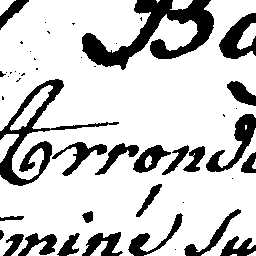 Ba
Arrond
miné su